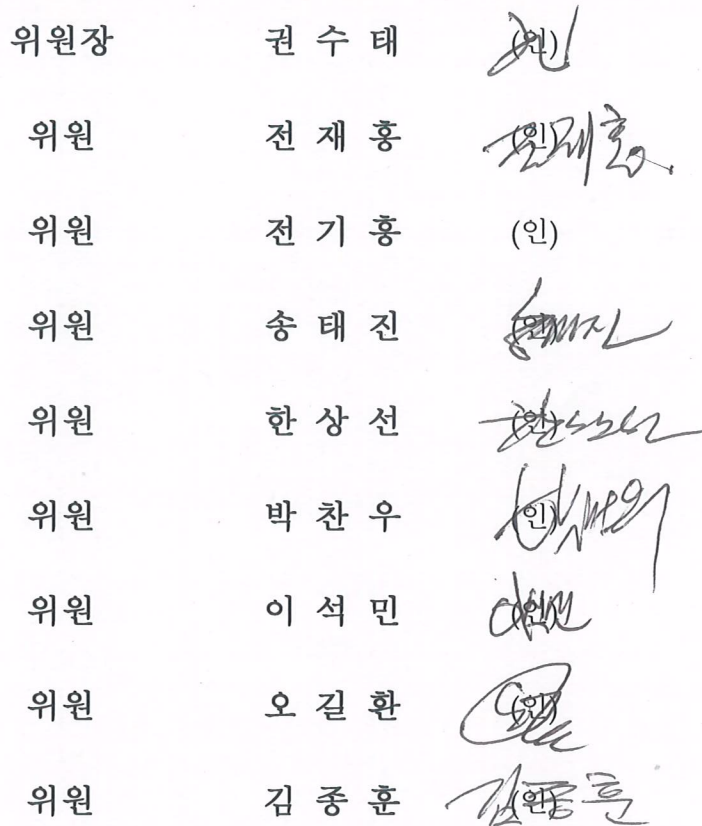 위원장 권 수 태 (인)
위원 전 재 홍 (인) 전재홍
위원 전 기 홍 (인)
위원 송 태 진 (인)
위원 한 상 선 (인)
위원 박 찬 우 (인)
위원 이 석 민 (인)
위원 오 길 환 (인)
위원 김 종 훈 (인) 김종훈